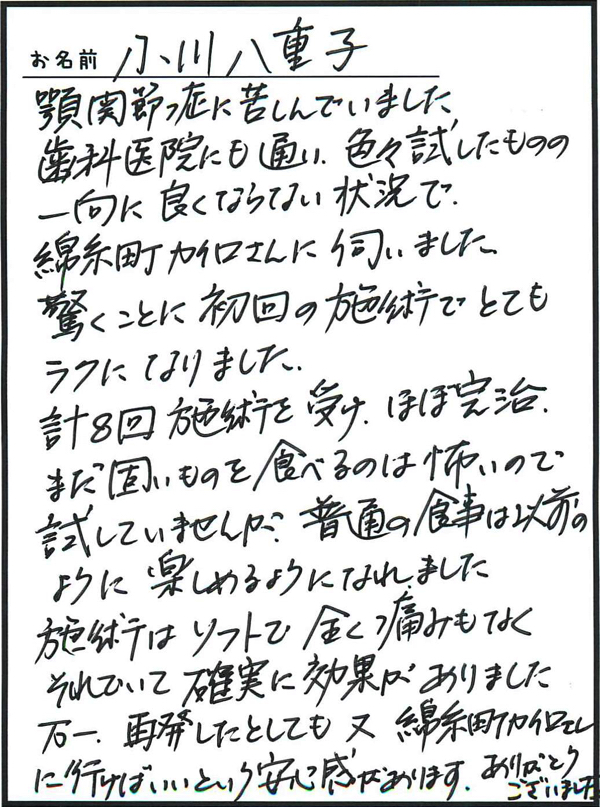 お名前 小川八重子
顎関節症に苦しんでいました。
歯科医院にも通い、色々試したものの
一向に良くならない状況で、
綿糸町カイロさんに伺いました。
驚くことに初回の施術でとても
ラクになりました。
計8回施術を受け、ほぼ完治。
まだ固いものを食べるのは怖いので
試していませんが、普通の食事は以前の
ように楽しめるようになれました
施術はソフトで全く痛みもなく
それでいて確実に効果がありました
万一、再発したとしても又綿糸町カイロさん
に行けばいいという安心感があります。ありがとう
ございました